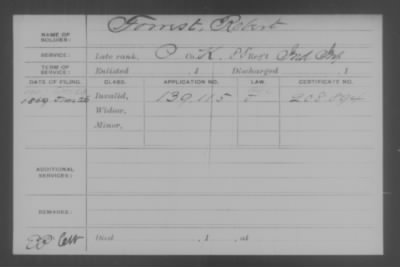 NAME OF SOLDIER: Forrest, Robert
SERVICE: Late rank, P Co. K, 85 Reg't Ind Inf
TERM OF SERVICE: Enlisted , 1 Discharged , 1
DATE OF FILING. CLASS. APPLICATION NO. LAW. CERTIFICATE NO.
1869 Invalid, 139.115 208.894
Widow,
Minor,
ADDITIONAL SERVICES:
REMARKS:
Died , 1 , at